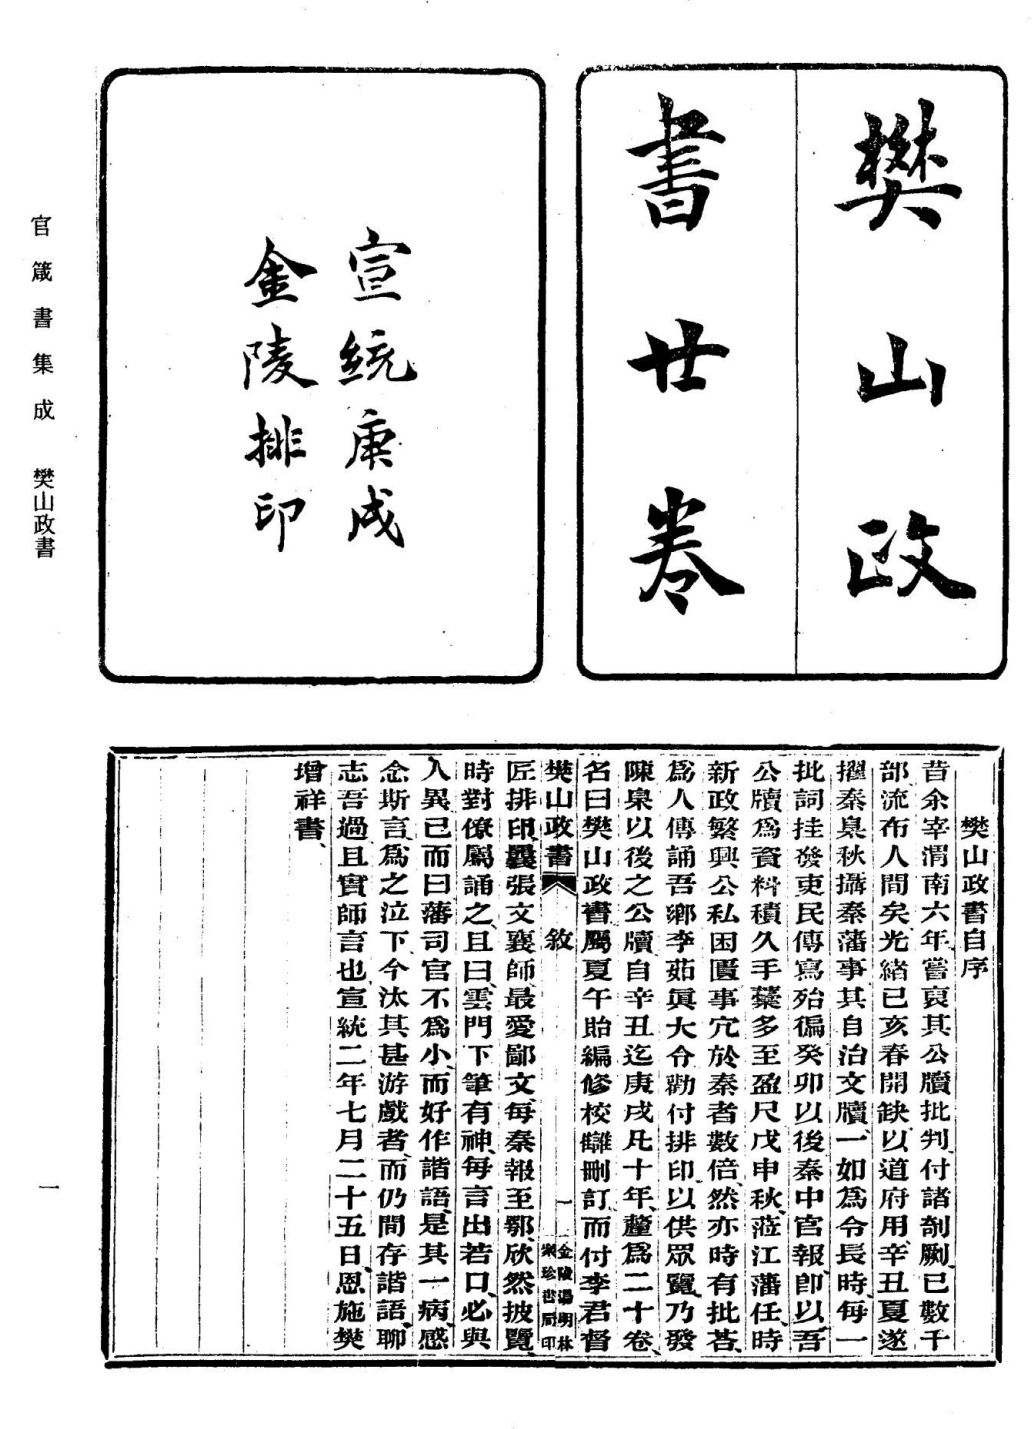 樊山政
書廿卷
宣統庚戌
金陵排印
官箴書集成　樊山政書
樊山政書自序
昔余宰渭南六年嘗裒其公牘批判付諸剞劂已數千
部流布人間矣光緒己亥春開缺以道府用辛丑夏遂
擢秦臬秋攝秦藩事其自治文牘一如為令長時每一
批詞挂發吏民傳寫殆徧癸卯以後秦中官報卽以吾
公牘為資料積久手藁多至盈尺戊申秋蒞江藩任時
新政繁興公私困匱事宂於秦者數倍然亦時有批荅
為人傳誦吾鄉李茹眞大令勸付排印以供眾覽乃發
陳臬以後之公牘自辛丑迄庚戌凡十年釐為二十卷
名曰樊山政書屬夏午貽編修校讎刪訂而付李君督
樊山政書　敘　一　金陵湯明林聚珍書局印
匠排印曩張文襄師最愛鄙文每秦報至鄂欣然披覽
時對僚屬誦之且曰雲門下筆有神每言出若口必與
人異已而曰藩司官不為小而好作諧語是其一病感
念斯言為之泣下今汰其甚游戲者而仍間存諧語聊
志吾過且實師言也宣統二年七月二十五日恩施樊
增祥書
一